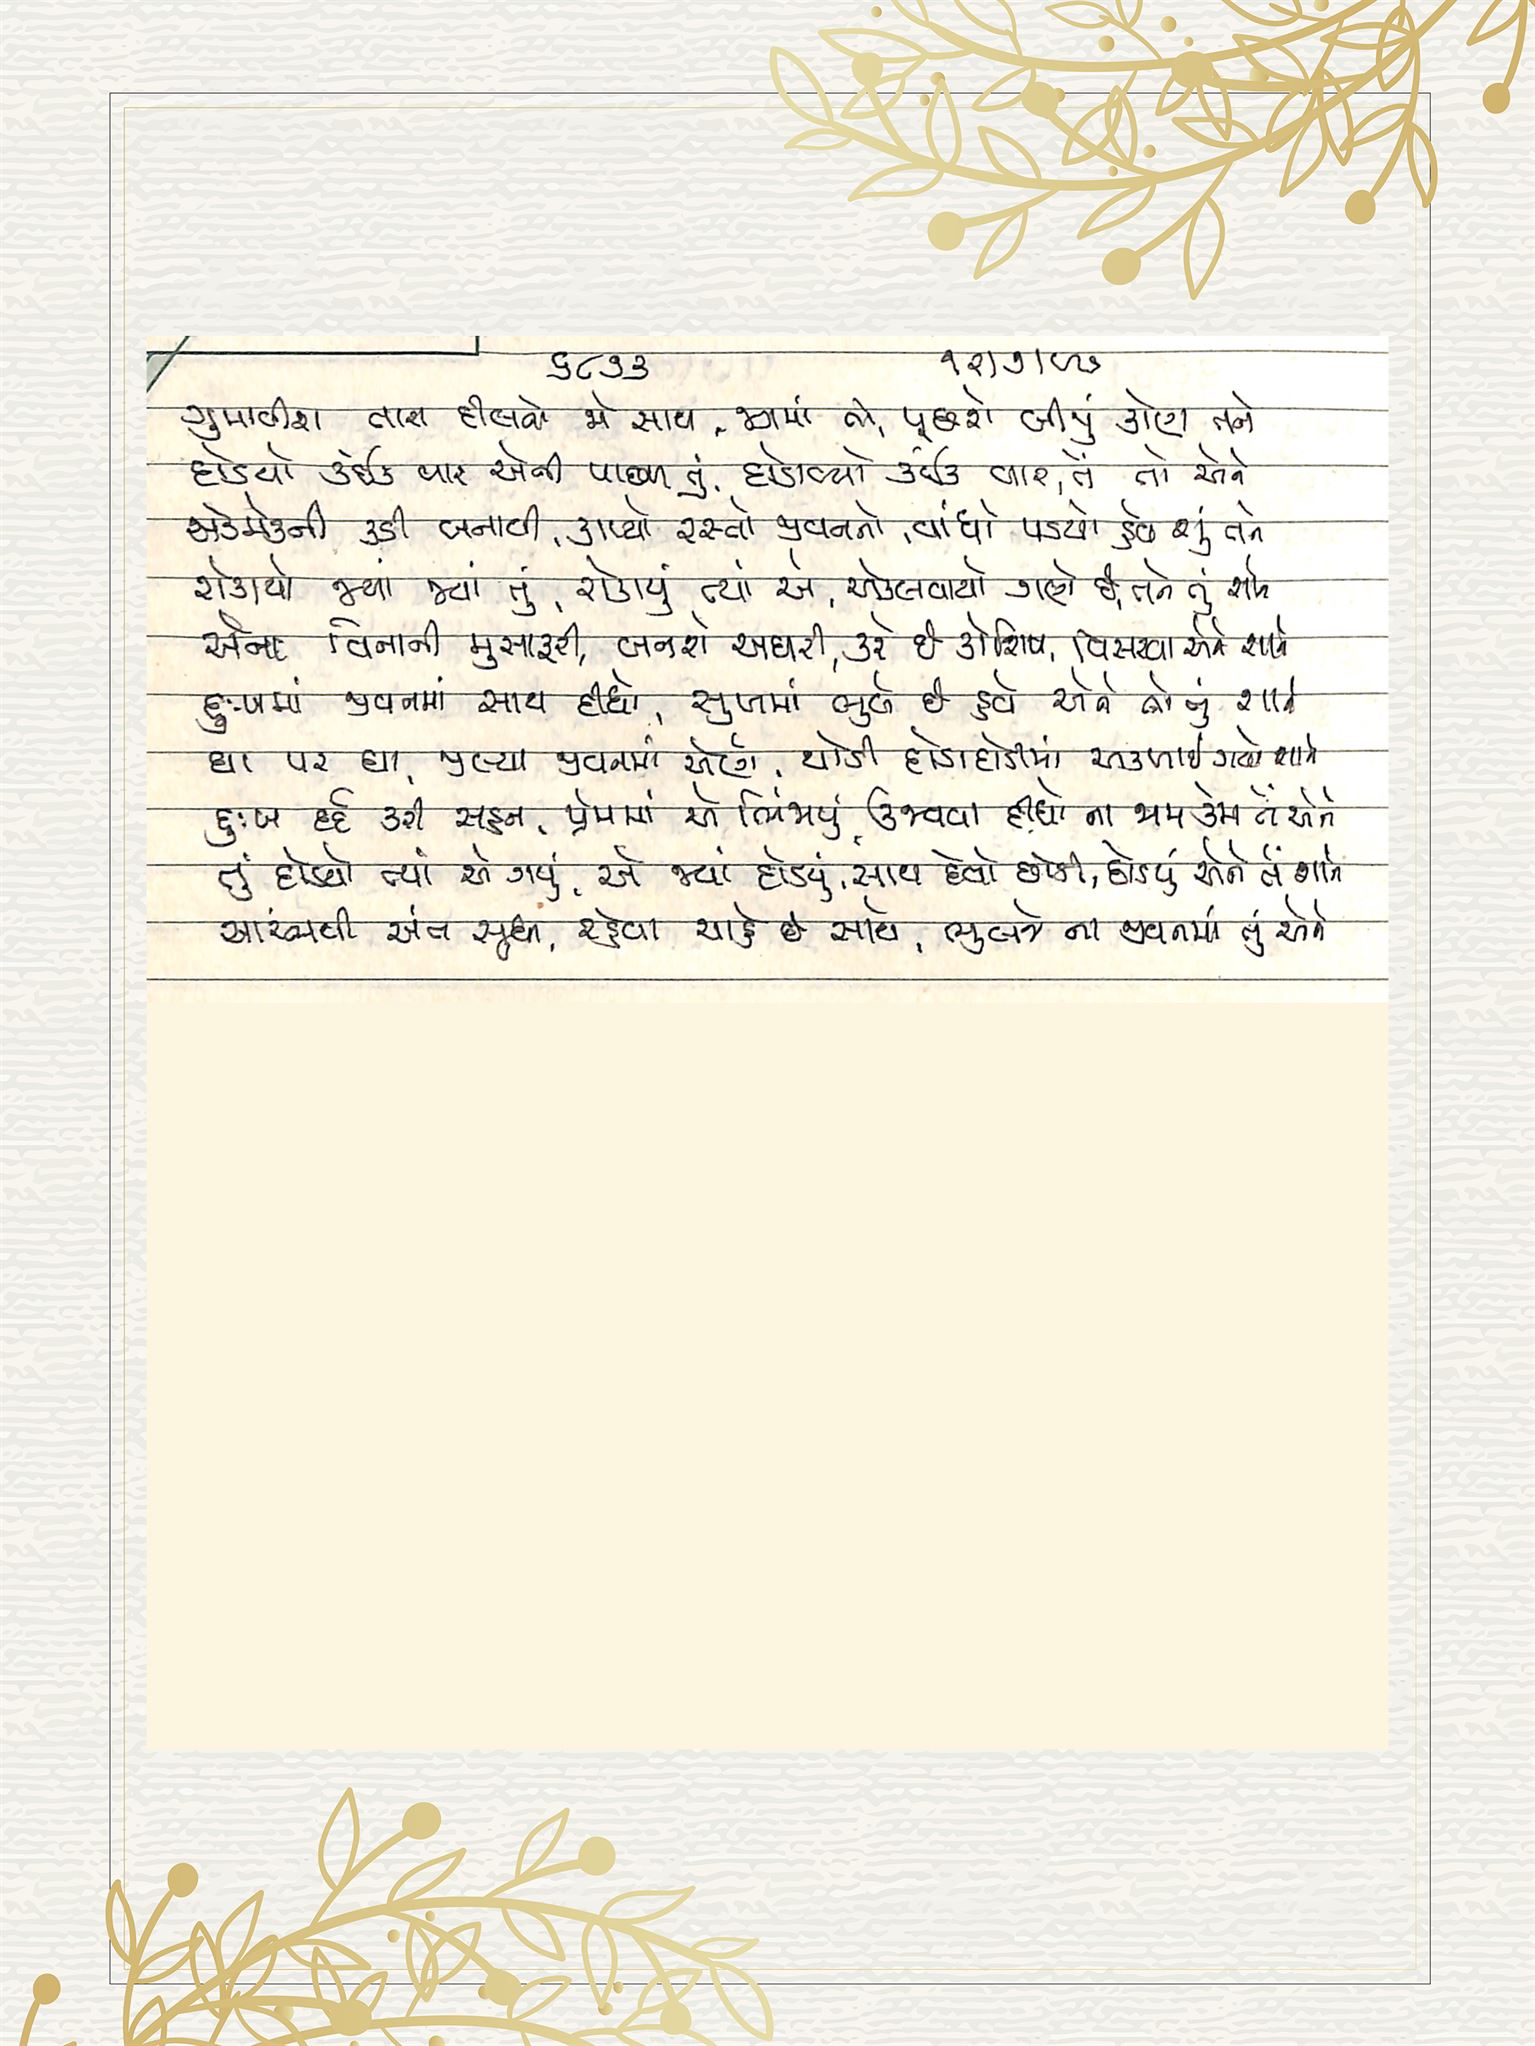 ૬૮૭૩ ૧૨/૭/૯૭
ગુમાવીશ તારા દીલનો જો સાથ, જગમાં તો, પૂછશે બીજું કોણ તને
દોડયો કંઈક વાર એની પાછળ તું, દોડાવ્યો કંઈક વાર, તેં તો એને
એકમેકની કડી બનાવી, કાપ્યો રસ્તો જીવનનો, વાંધો પડયો હવે શું તને
રોકાયો જ્યાં જ્યાં તું, રોકાયું ત્યાં એ, એકલવાયો ગણે છે, તને તું શાને
એના વિનાની મુસાફરી, બનશે અઘરી, કરે છે કોશિષ, વિસરવા એને શાને
દુઃખમાં જીવનમાં સાથ દીધો, સુખમાં ભુલે છે હવે એને તો તું શાને
ઘા પર ઘા, જીલ્યા જીવનમાં એણે, થોડી દોડાદોડીમાં અકળાઈ ગયો શાને
દુઃખ દર્દ કરી સહન, પ્રેમમાં એ ભિંજાયું, ઉજવવા દીધો ના જામ કેમ તેં એને
તું દોડયો ત્યાં એ ગયું, એ જ્યાં દોડયું, સાથ દેવો છોડી, છોડયું એને તેં શાને
આરંભથી અંત સુધી, રહેવા ચાહે છે સાથે, ભુલજે ના જીવનમાં તું એને